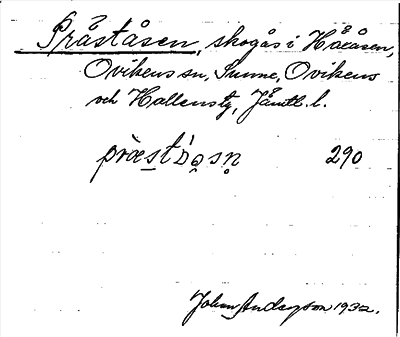 Pråståsen, skogås i Håxåsen,
Ovikens sn, Sunne, Ovikens
och Hallens tg, Jämtl. l.
præstå̀sn̥ 290
Johan Anderson 1932.